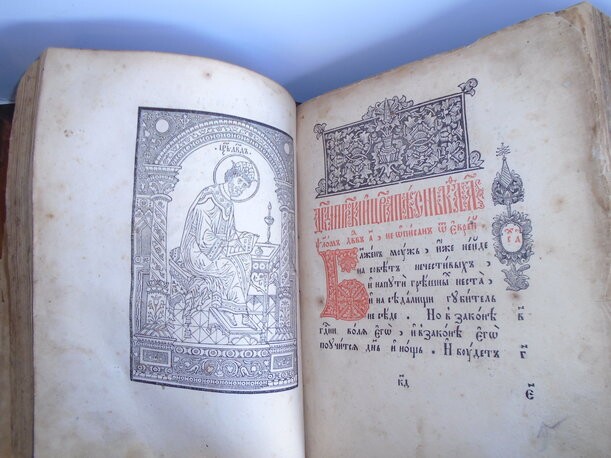 ЦР҃Ь ДВ҃ДЪ
ѱаломъ дв҃дꙋ, а҃, не ѡписанъ ѿ еврей
Блаженъ мꙋжь, иже неиде
на совѣтъ нечестивыхъ,
и напꙋти грѣшныхъ неста
и на сѣдалищи гꙋбитель
не сѣде. Но в законѣ
гд҃ни волѧ єгѡ, и в законѣ єгѡ
поꙋчитсѧ дн҃ь и нощь. И бꙋдетъ
в҃
г҃
кд
є